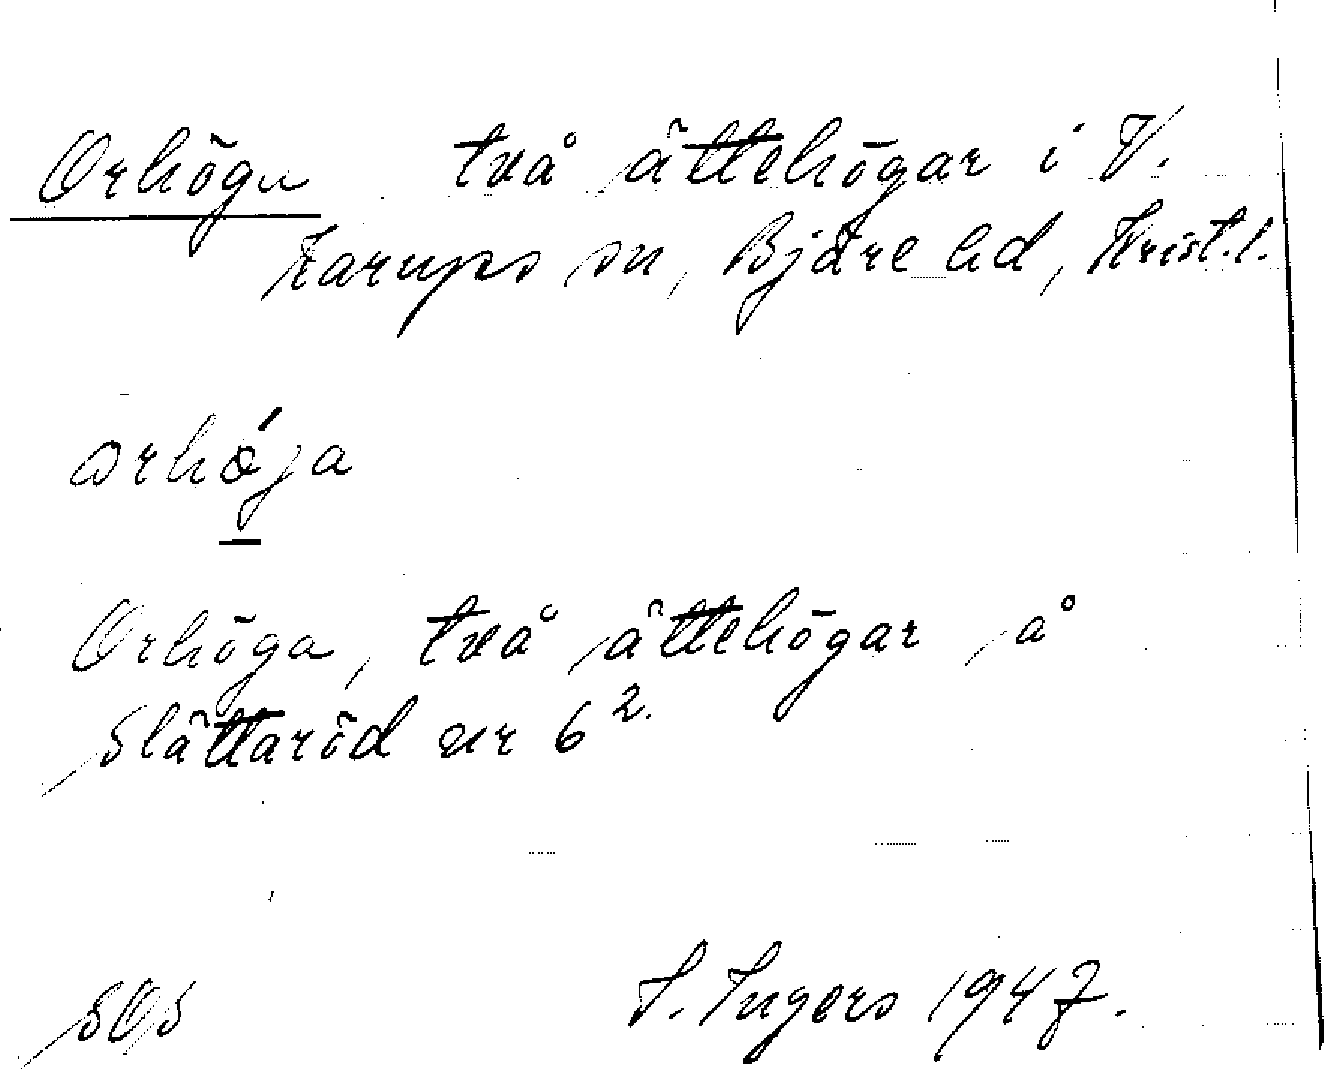 Orhöga två ättehögar i V.
Karups sn, Bjäre hd, Krist.l.
orhǿja
Orhöga, två ättehögar å
Slättaröd nr 6².
SOS I. Ingers 1947.